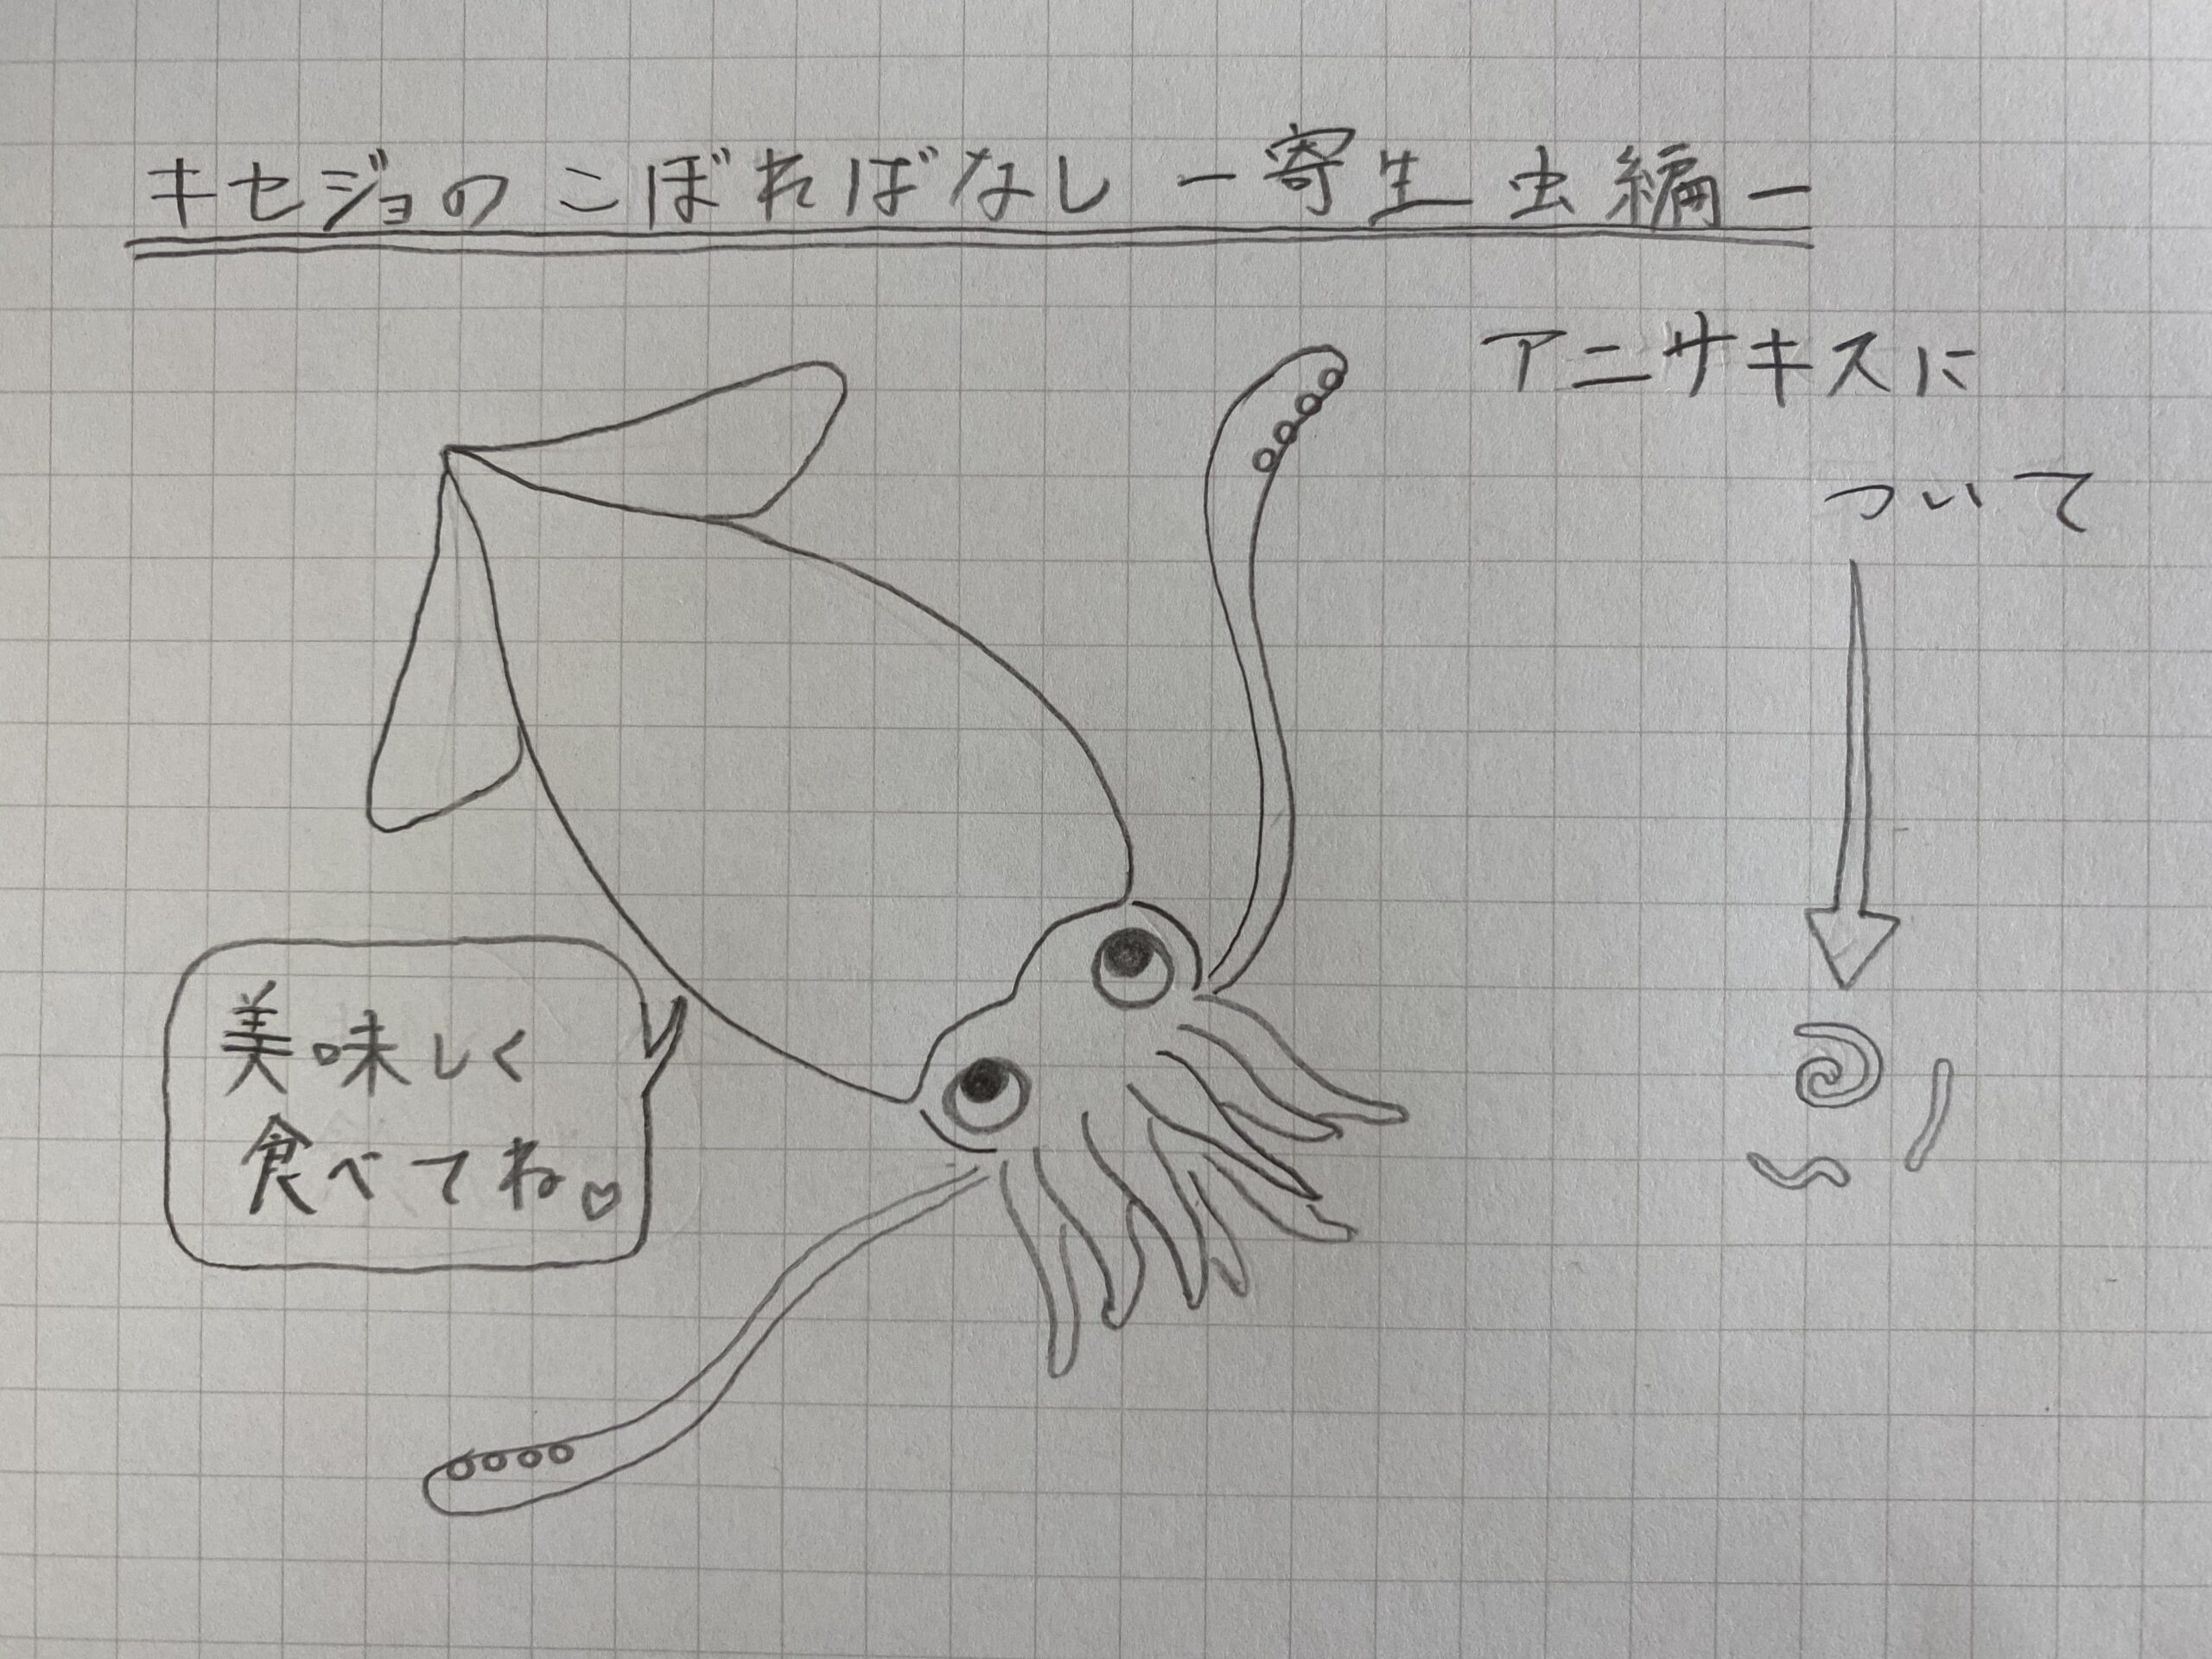 キセジョのこぼればなし ー寄生虫編ー
アニサキスに
ついて
美味しく
食べてね♡